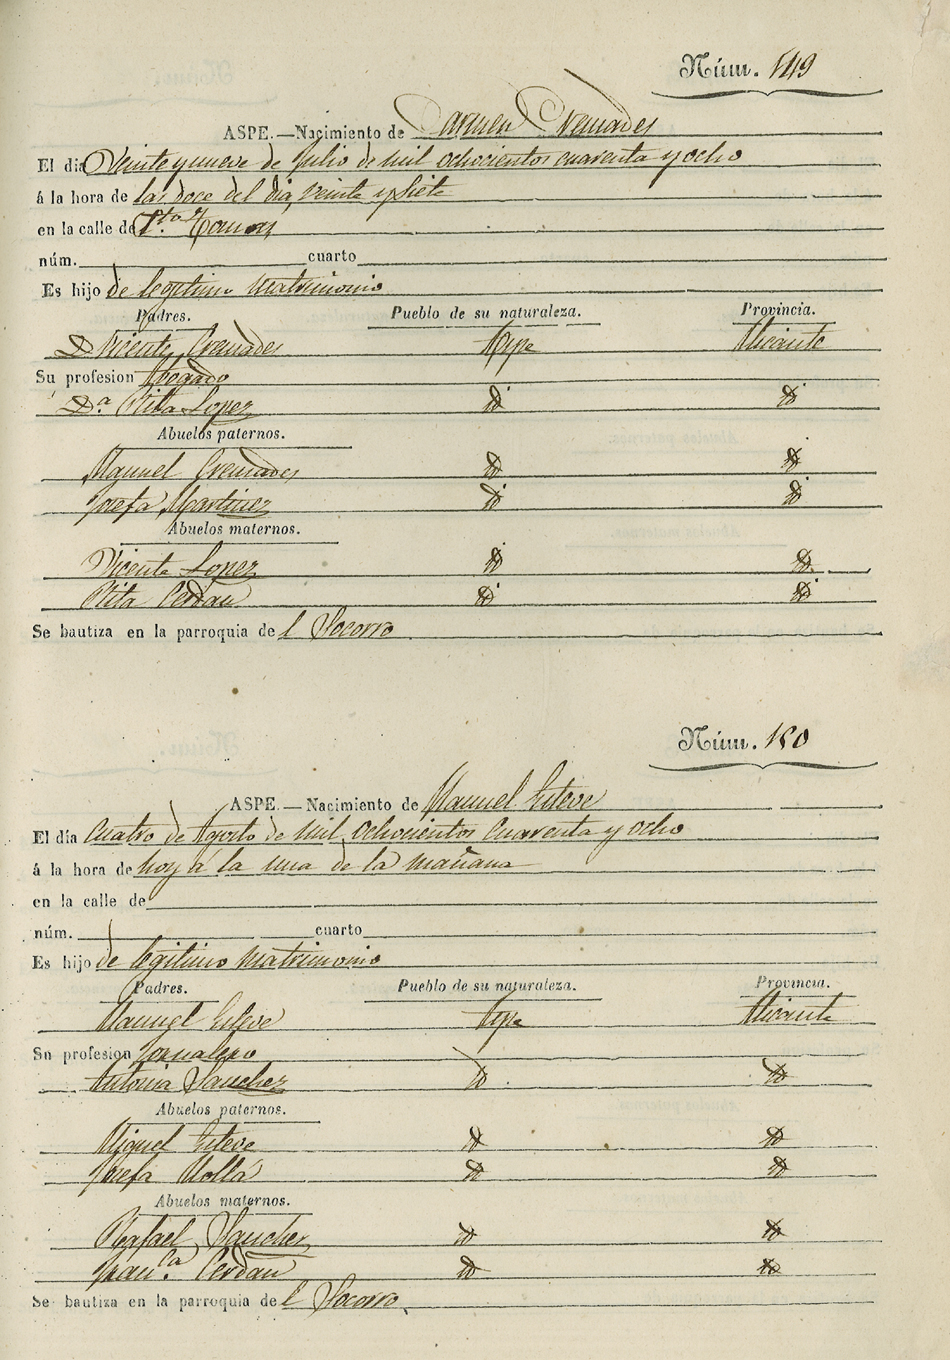 Núm. 149
ASPE.—Nacimiento de Carmen Cremades
El día Veinte y nueve de Julio de mil ochocientos cuarenta y ocho
á la hora de las doce del dia, veinte y siete
en la calle de
núm. cuarto
Es hijo de legitimo Matrimonio
Padres. Pueblo de su naturaleza. Provincia.
D Vicente Cremades Aspe Alicante
Su profesion Abogado
Dª Rita Lopez
Abuelos paternos.
Manuel Cremades
Josefa Martinez
Abuelos maternos.
Vicente Lopez
Rita Cerdan
Se bautiza en la parroquia del Socorro
Núm. 150
ASPE.—Nacimiento de Manuel Esteve
El día Cuatro de Agosto de Mil ochocientos Cuarenta y ocho
á la hora de hoy á la una de la mañana
en la calle de
núm. cuarto
Es hijo de legitimo Matrimonio
Padres. Pueblo de su naturaleza. Provincia.
Manuel Esteve Aspe Alicante
Su profesion Jornalero
Antonia Sanchez
Abuelos paternos.
Miguel Esteve
Josefa Mollá
Abuelos maternos.
Rafael Sanchez
Fran.ca Cerdan
Se bautiza en la parroquia del Socorro